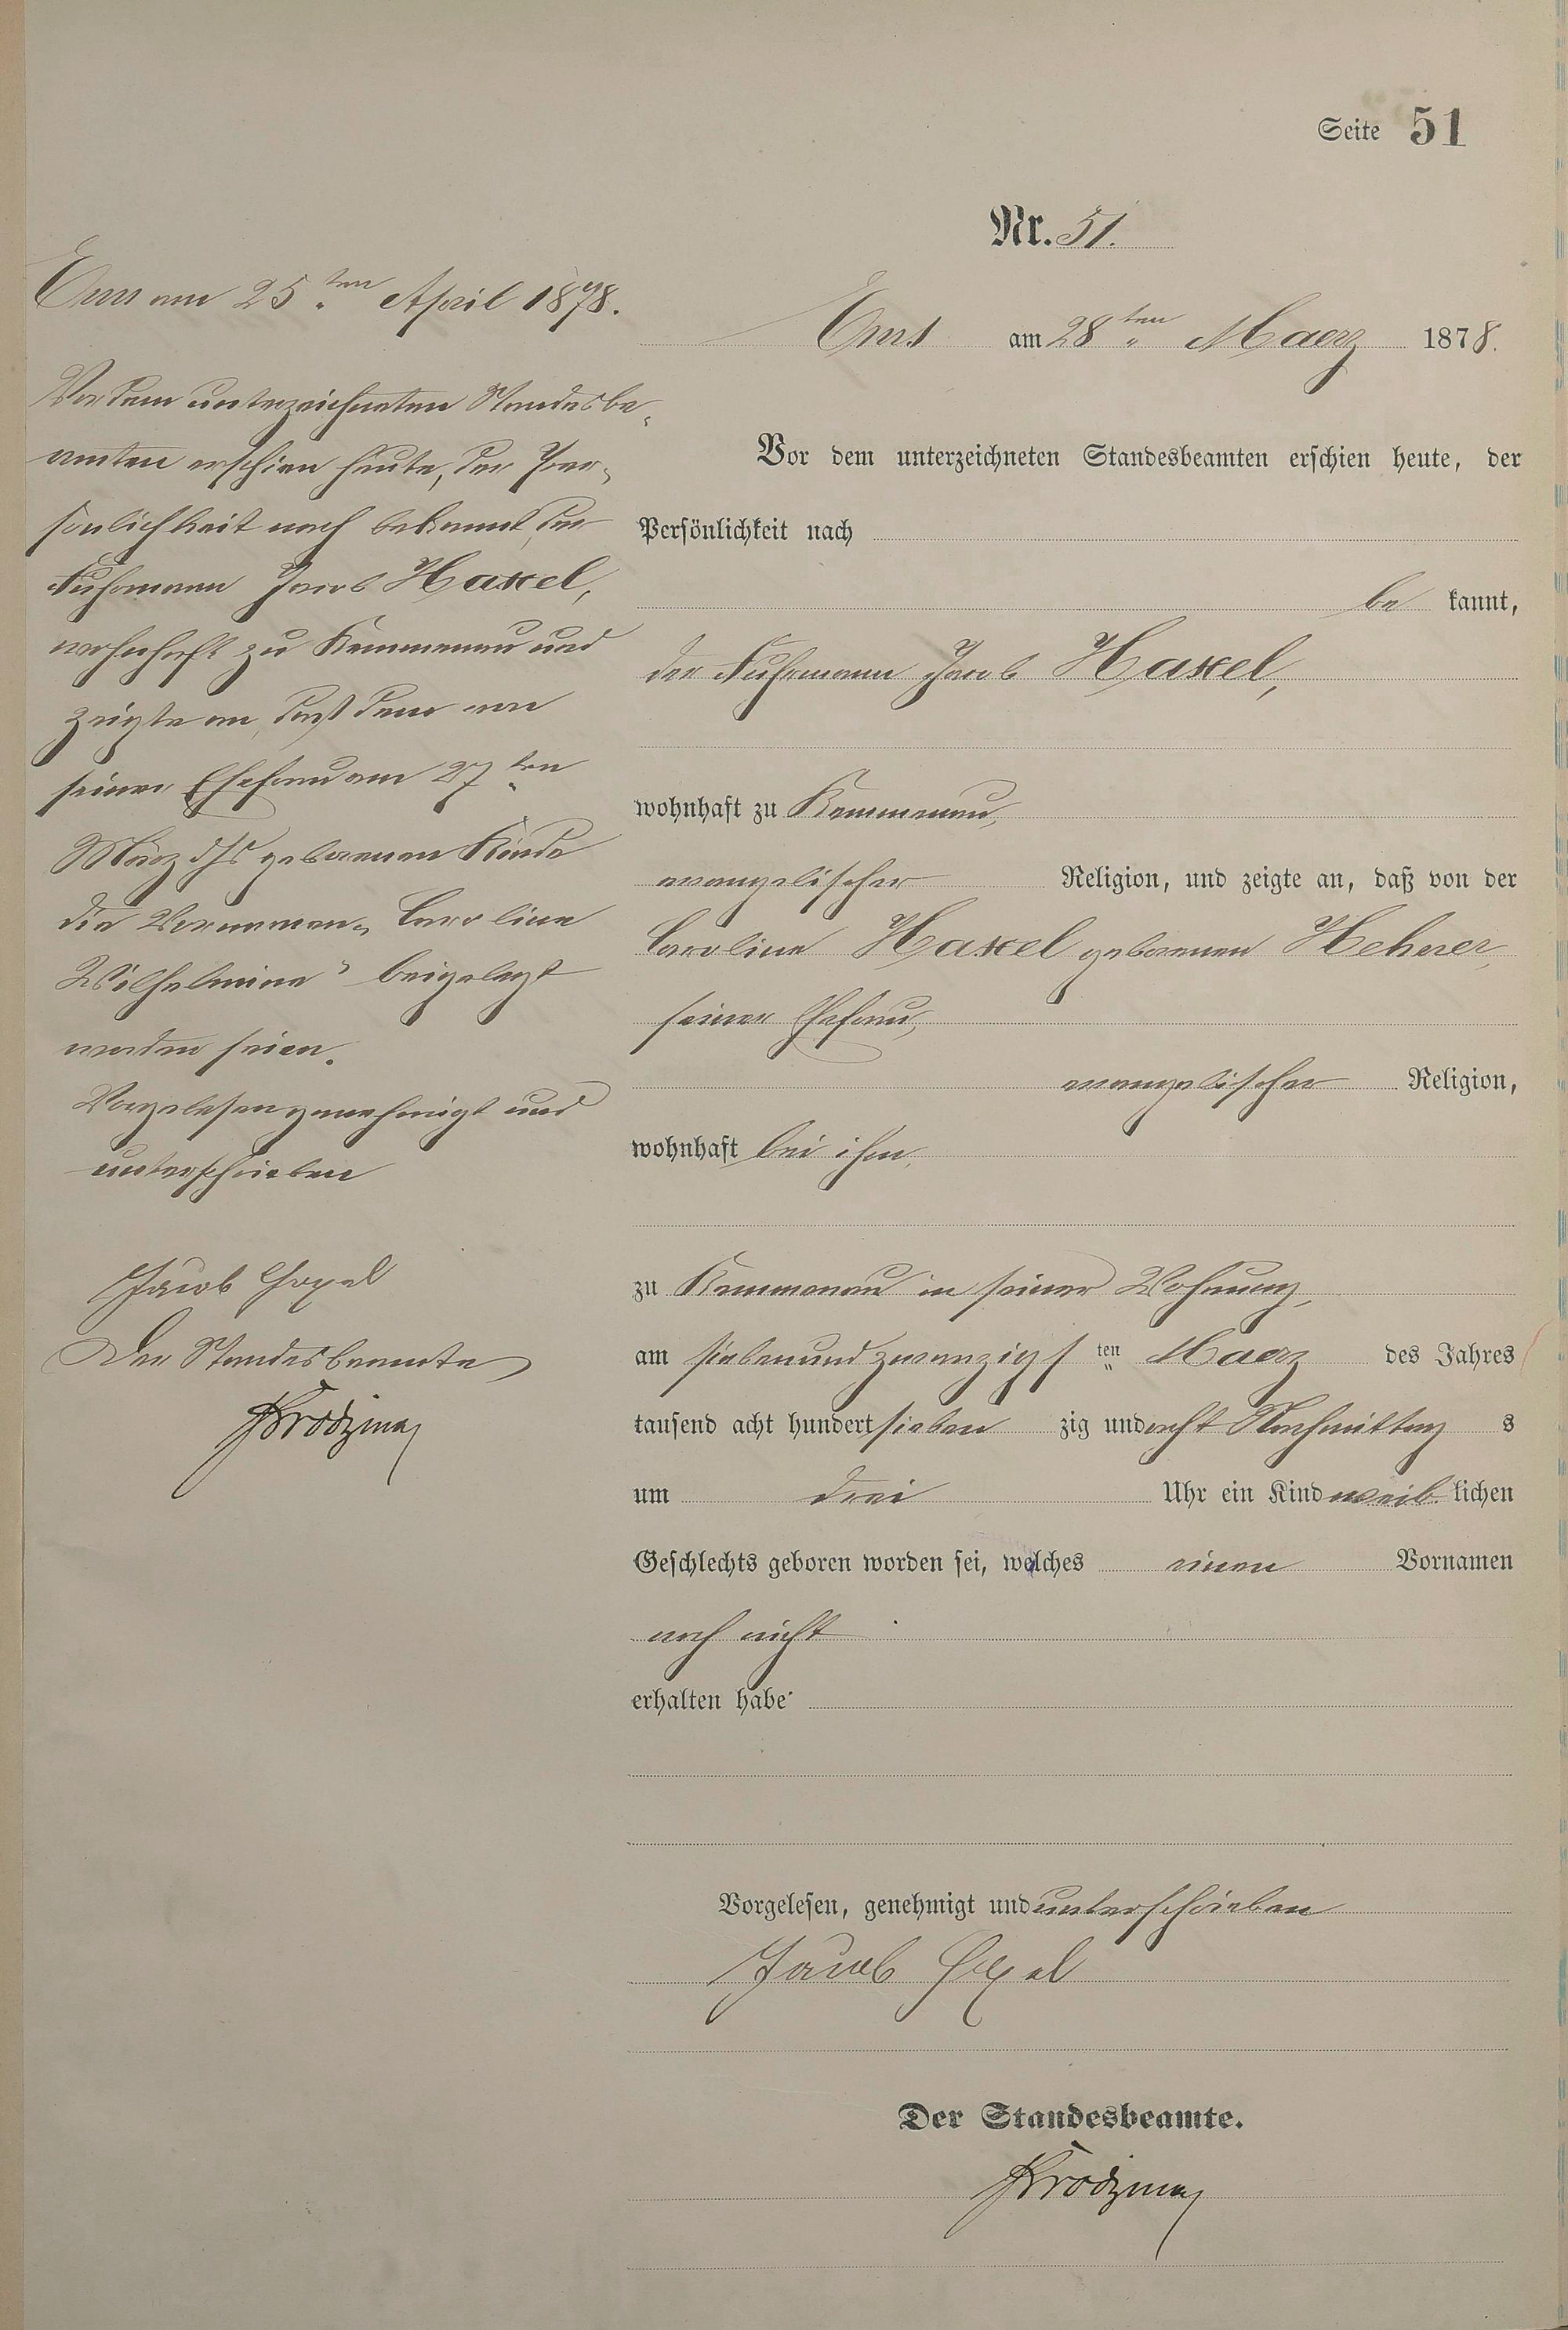 Seite 51
Nr. 51.
Ems am 28ten Maerz 1878.
Vor dem unterzeichneten Standesbeamten erschien heute, der
Persönlichkeit nach
be kannt,
der Fuhrmann Jacob Haxel,
wohnhaft zu Kemmenau,
evangelischer Religion, und zeigte an, daß von der
Caroline Haxel geborenen Hehner,
seiner Ehefrau,
evangelischer Religion,
wohnhaft bei ihm,
zu Kemmenau in seiner Wohnung,
am siebenundzwanzigsten Maerz des Jahres
tausend acht hundert sieben zig und acht Nachmittag s
um drei Uhr ein Kind weib lichen
Geschlechts geboren worden sei, welches einen Vornamen
noch nicht
erhalten habe
Vorgelesen, genehmigt und unterschrieben
Jacob Haxel
Der Standesbeamte.
Ems am 25ten April 1878.
Vor dem unterzeichneten Standesbe-
amten erschien heute, der Per-
sönlichkeit nach bekannt, der
Fuhrmann Jacob Haxel,
wohnhaft zu Kemmenau und
zeigte an, daß dem von
seiner Ehefrau am 27ten
März ds Js geborenen Kinde
die Vornamen „Caroline
Wilhelmine“ beigelegt
worden seien.
Vorgelesen genehmigt und
unterschrieben
Jacob Haxel
Der Standesbeamte